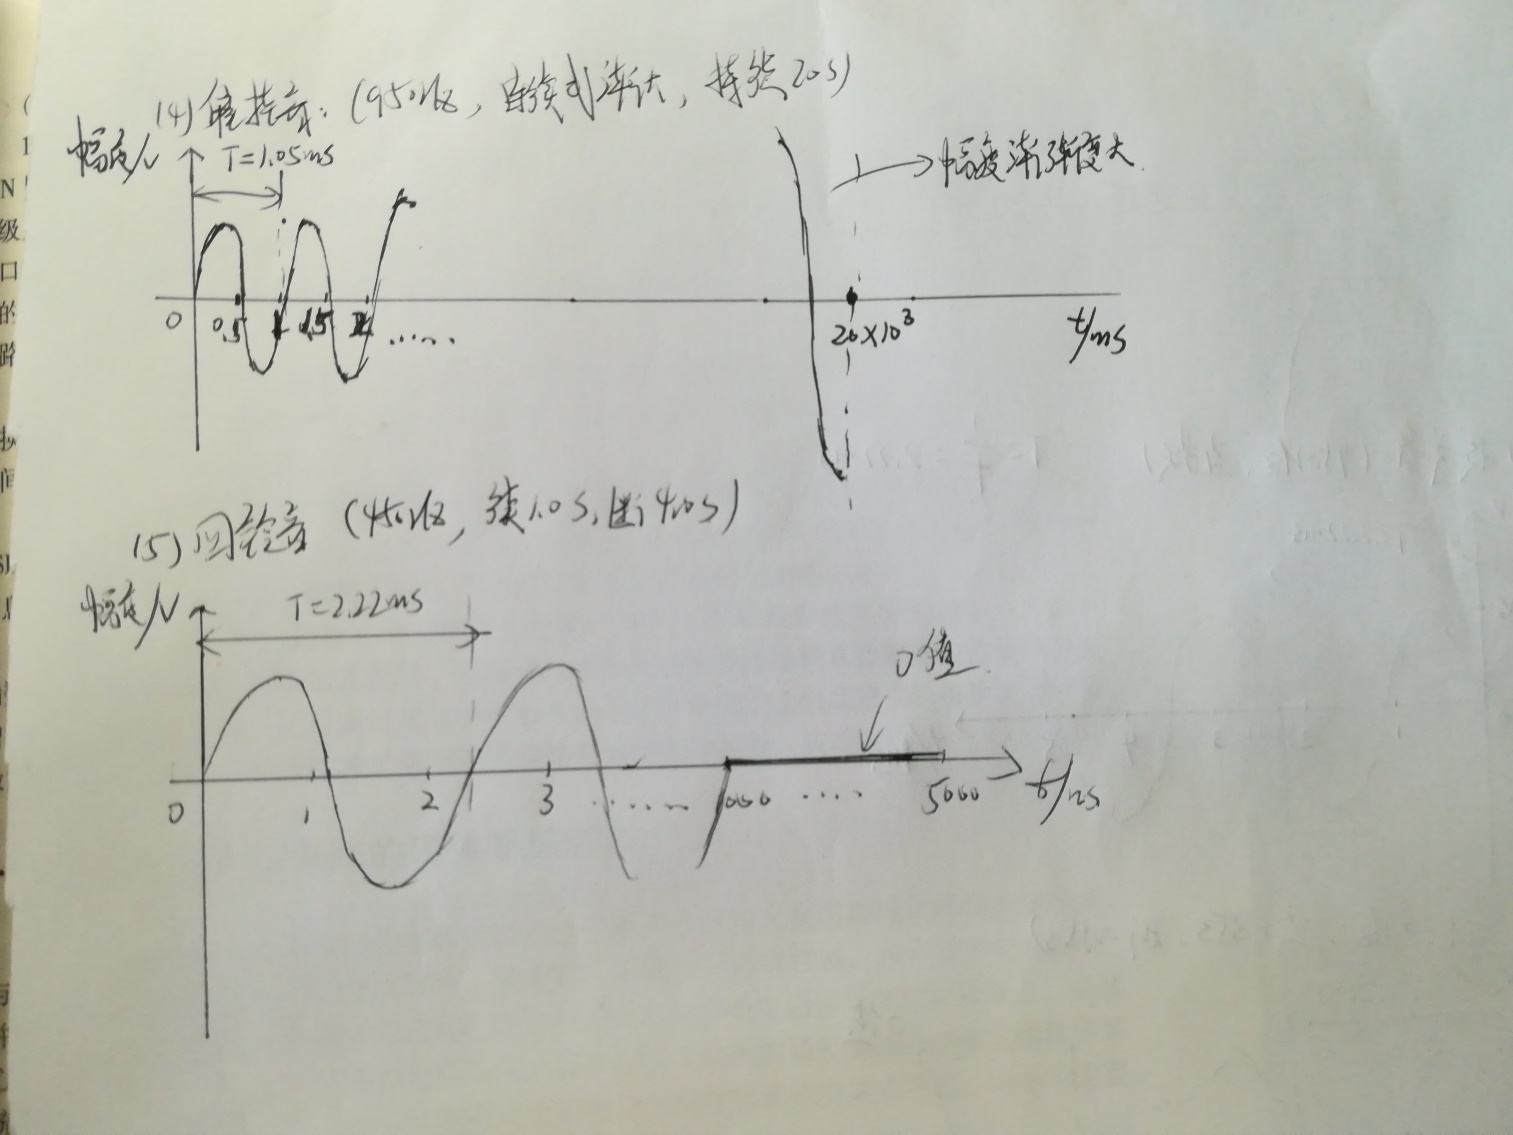 (4) 催挂音：(950Hz，连续式渐大，持续20s)
幅度/V
T=1.05ms
幅度渐渐变大
0 0.5 1 1.5 2 ......
20×10³
t/ms
(5) 回铃音 (450Hz，续1.0s，断4.0s)
幅度/V
T=2.22ms
0值
0 1 2 3 ...... 1000 .... 5000
t/ms